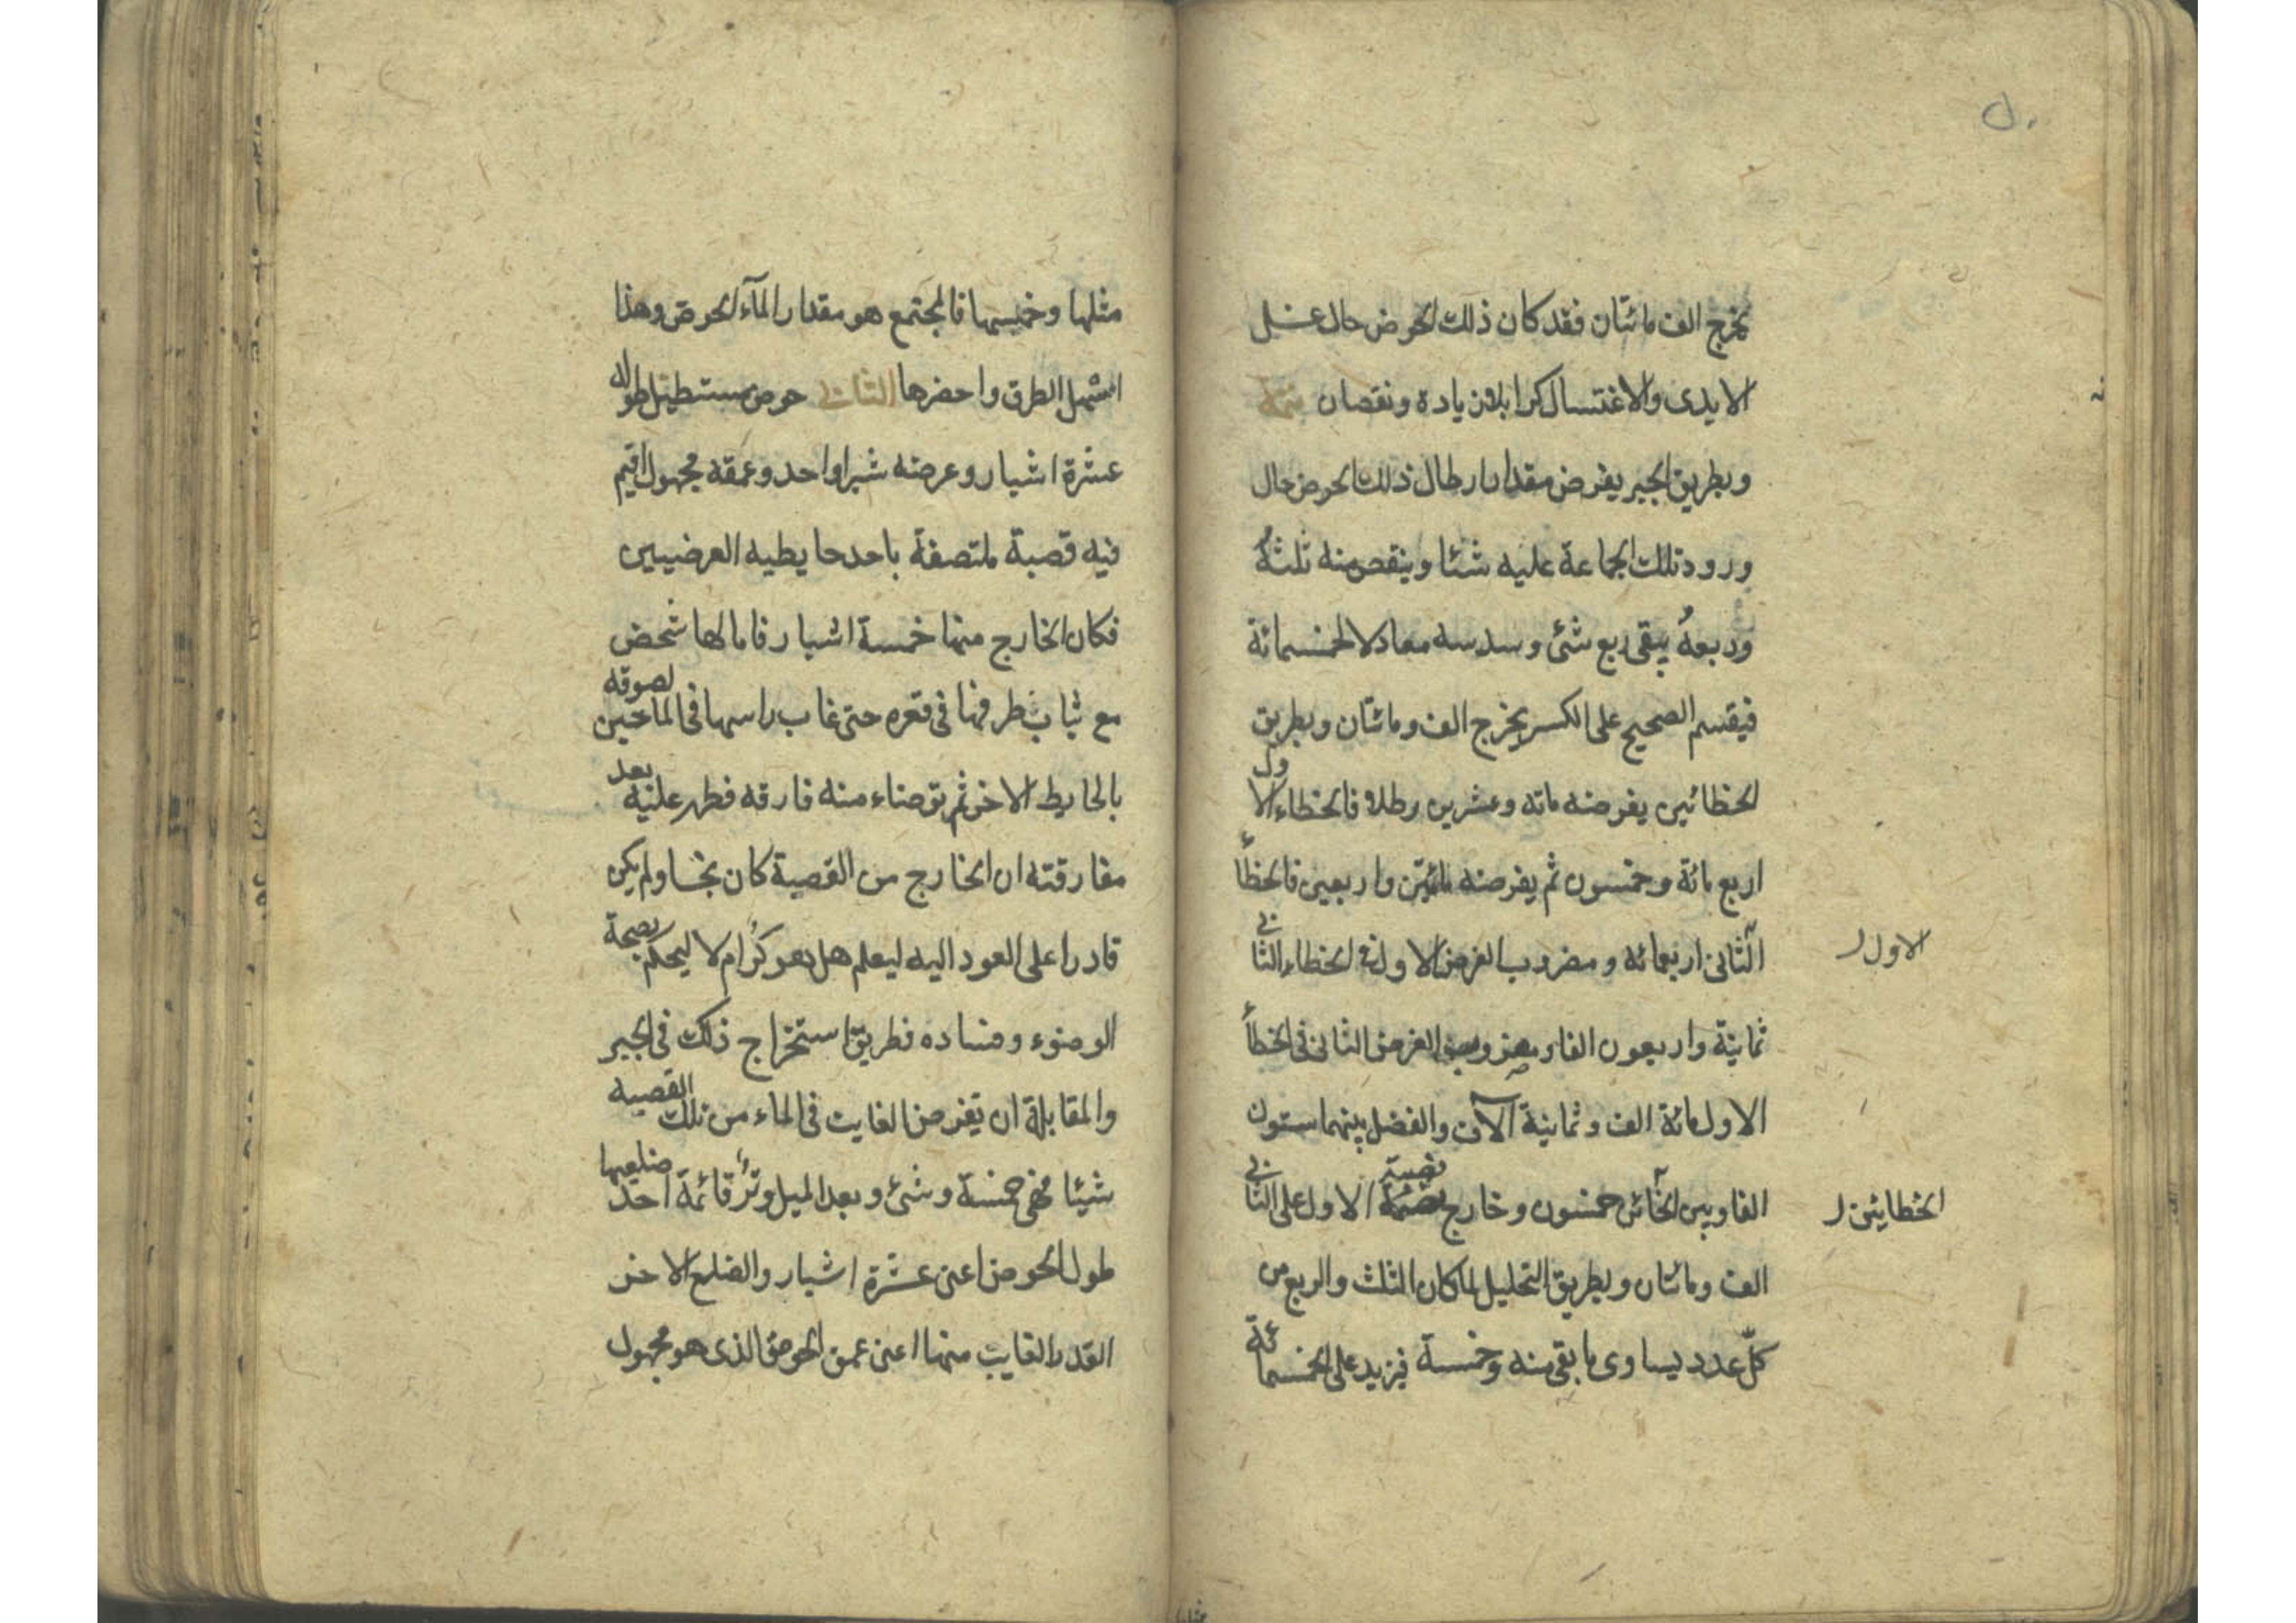 يخرج الف مائتان فقد كان ذلك الحوض حال غسل
الايدى والاغتسال كرا بلا زيادة ونقصان
وبطريق الجبر يفرض مقدار ارطال ذلك الحوض حال
ورود تلك الجماعة عليه شئا وينقص منه ثلثهُ
وربعهُ يبقى ربع شئ وسدسه معادلا لخمسمائة
فيقسم الصحيح على الكسر يخرج الف ومائتان وبطريق
الخطائين يفرضه مائه وعشرين رطلا فالخطاء الاول
اربع مائة وخمسون ثم يفرضه مائتين واربعين فالخطأ
الثانى اربعمائه ومضروب الفرض الاول فى الخطاء الثانى
الاول
ثمانية واربعون الفا ومضروب الفرض الثانى فى الخطأ
الاول مائة الف وثمانية آلاف والفضل بينهما ستون
الفا وبين الخائن خمسون وخارج قسمة الاول على الثانى
الخطايئن
الف ومائتان وبطريق التحليل لما كان الثلث والربع من
كلّ عدد يساوى ما بقى منه وخمسة فيزيد على الخمسمائة
مثلها وخمسها فالمجتمع هو مقدار المآء الحوض وهذا
اشمل الطرق واحضرها الثانى حوض مستطيل طوله
عشرة اشبار وعرضه شبرا واحد وعمقه مجهول اقيم
فيه قصبة ملتصقة باحد حايطيه العرضيين
فكان الخارج منها خمسة اشبار فامالها شخص
مع ثبات طرفها فى قعره حتى غاب راسها فى الماء حين لصوقه
بالحايط الاخر ثم توضاء منه فارقه فظهر عليه بعد
مفارقته ان الخارج من القصبة كان نجسا ولم يكن
قادرا على العود اليه ليعلم هل هو كرّ ام لا ليحكم بصحة
الوضوء وفساده فطريق استخراج ذلك فى الجبر
والمقابلة ان تفرض الغايب فى الماء من تلك القصبه
شيئا فهى خمسة وشئ وبعد الميل وتر قائمة احد ضلعيها
طول الحوض اعنى عشرة اشبار والضلع الاخر
القدر الغايب منها اعنى عمق الحوض الذى هو مجهول